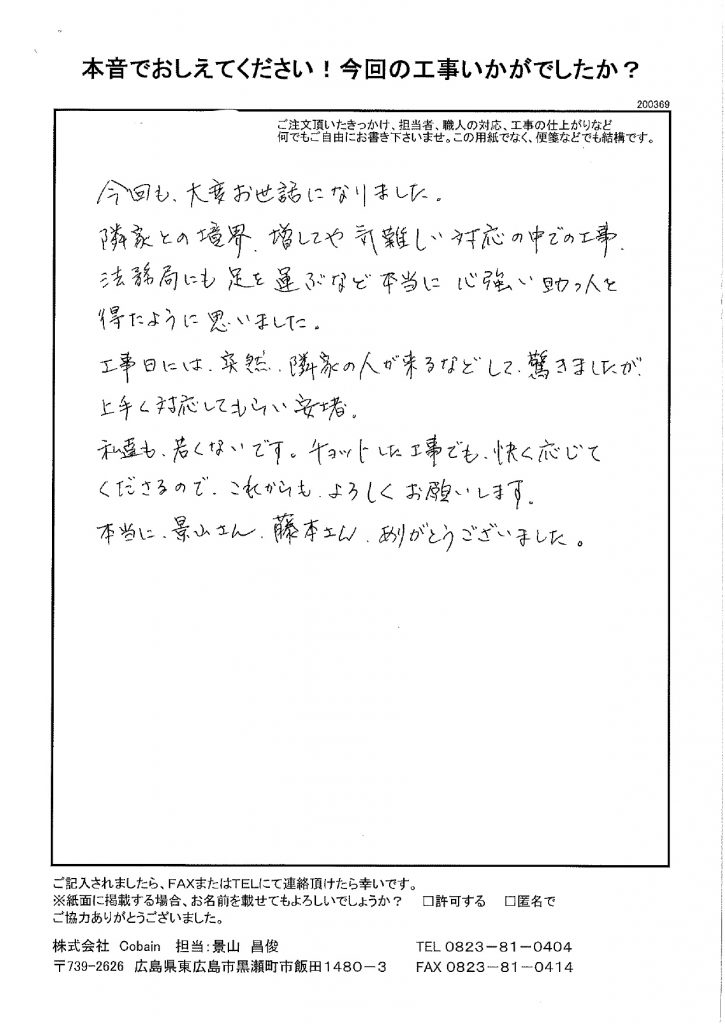 本音でおしえてください！今回の工事いかがでしたか？
200369
ご注文頂いたきっかけ、担当者、職人の対応、工事の仕上がりなど
何でもご自由にお書き下さいませ。この用紙でなく、便箋などでも結構です。
今回も、大変お世話になりました。
隣家との境界、増してや気難しい対応の中での工事、
法務局にも足を運ぶなど本当に心強い助っ人を
得たように思いました。
工事日には、突然、隣家の人が来るなどして、驚きましたが、
上手く対応してもらい安堵。
私達も、若くないです。チョットした工事でも、快く応じて
くださるので、これからも、よろしくお願いします。
本当に、景山さん、藤本さん、ありがとうございました。
ご記入されましたら、FAXまたはTELにて連絡頂けたら幸いです。
※紙面に掲載する場合、お名前を載せてもよろしいでしょうか？ □許可する □匿名で
ご協力ありがとうございました。
株式会社 Cobain 担当：景山 昌俊 TEL 0823－81－0404
〒739-2626 広島県東広島市黒瀬町市飯田1480－3 FAX 0823－81－0414